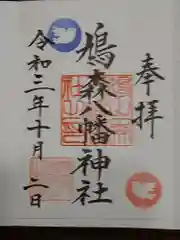 奉拝
鳩森八幡神社
令和三年十月二日